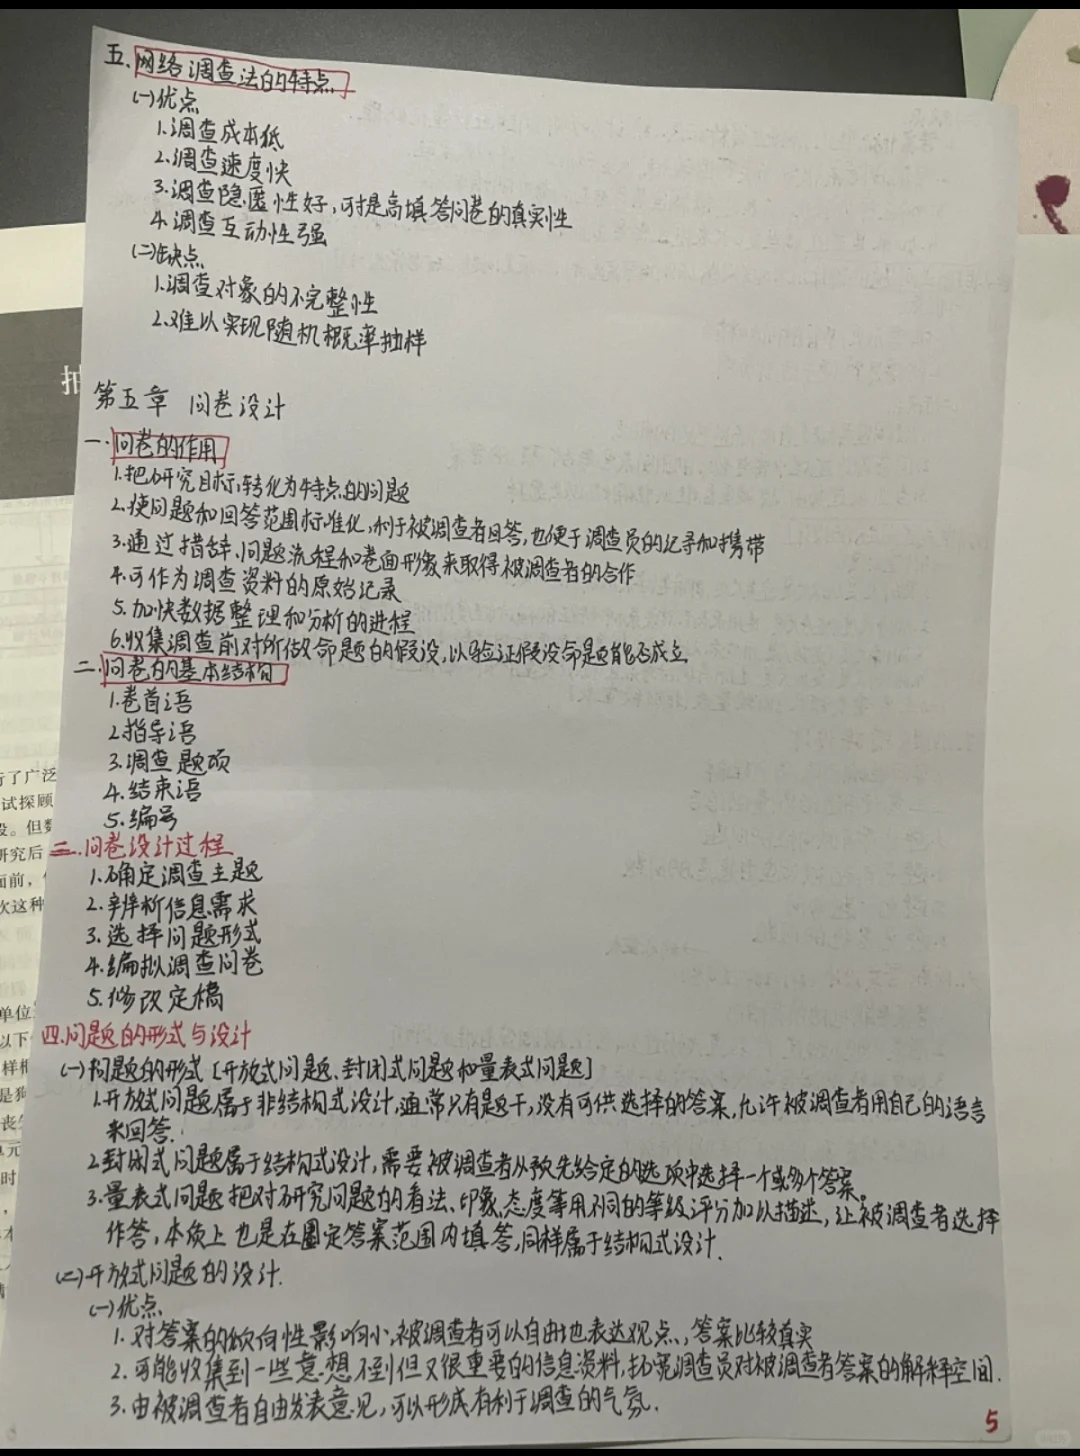 五.网络调查法的特点
(一)优点
1.调查成本低
2.调查速度快
3.调查隐匿性好,可提高填答问卷的真实性
4.调查互动性强
(二)缺点
1.调查对象的不完整性
2.难以实现随机概率抽样
第五章 问卷设计
一.问卷的作用
1.把研究目标转化为特点的问题
2.使问题和回答范围标准化,利于被调查者回答,也便于调查员的记录和携带
3.通过措辞、问题流程和卷面形象来取得被调查者的合作
4.可作为调查资料的原始记录
5.加快数据整理和分析的进程
6.收集调查前对所做命题的假设,以验证假设命题能否成立
二.问卷的基本结构
1.卷首语
2.指导语
3.调查题项
4.结束语
5.编号
三.问卷设计过程
1.确定调查主题
2.辨析信息需求
3.选择问题形式
4.编拟调查问卷
5.修改定稿
四.问题的形式与设计
(一)问题的形式[开放式问题、封闭式问题和量表式问题]
1.开放式问题属于非结构式设计,通常只有题干,没有可供选择的答案,允许被调查者用自己的语言
来回答.
2.封闭式问题属于结构式设计,需要被调查者从预先给定的选项中选择一个或多个答案。
3.量表式问题把对研究问题的看法、印象、态度等用不同的等级评分加以描述,让被调查者选择
作答,本质上也是在固定答案范围内填答,同样属于结构式设计.
(二)开放式问题的设计.
(一)优点
1.对答案的倾向性影响小,被调查者可以自由地表达观点,答案比较真实
2.可能收集到一些意想不到但又很重要的信息资料,拓宽调查员对被调查者答案的解释空间.
3.由被调查者自由发表意见,可以形成有利于调查的气氛.
5
行了广泛
试探顾
设。但数
研究后
面前,
次这种
单位
以下
样框